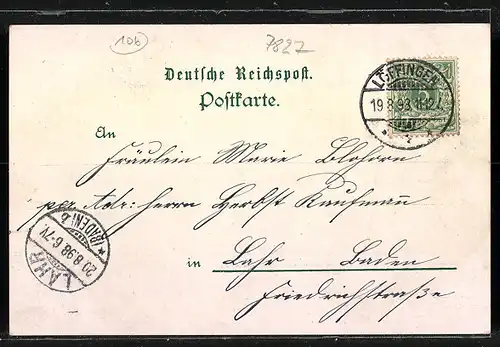 106
7827
Deutsche Reichspost.
Postkarte.
LÖFFINGEN
19.8.98.11-12V.
An
Fräulein Marie Blohorn
per Adr: Herrn Herbst Kaufmann
in Lahr Baden
Friedrichstraße
*(BADEN) b
20.8.98.6-7V.
LAHR